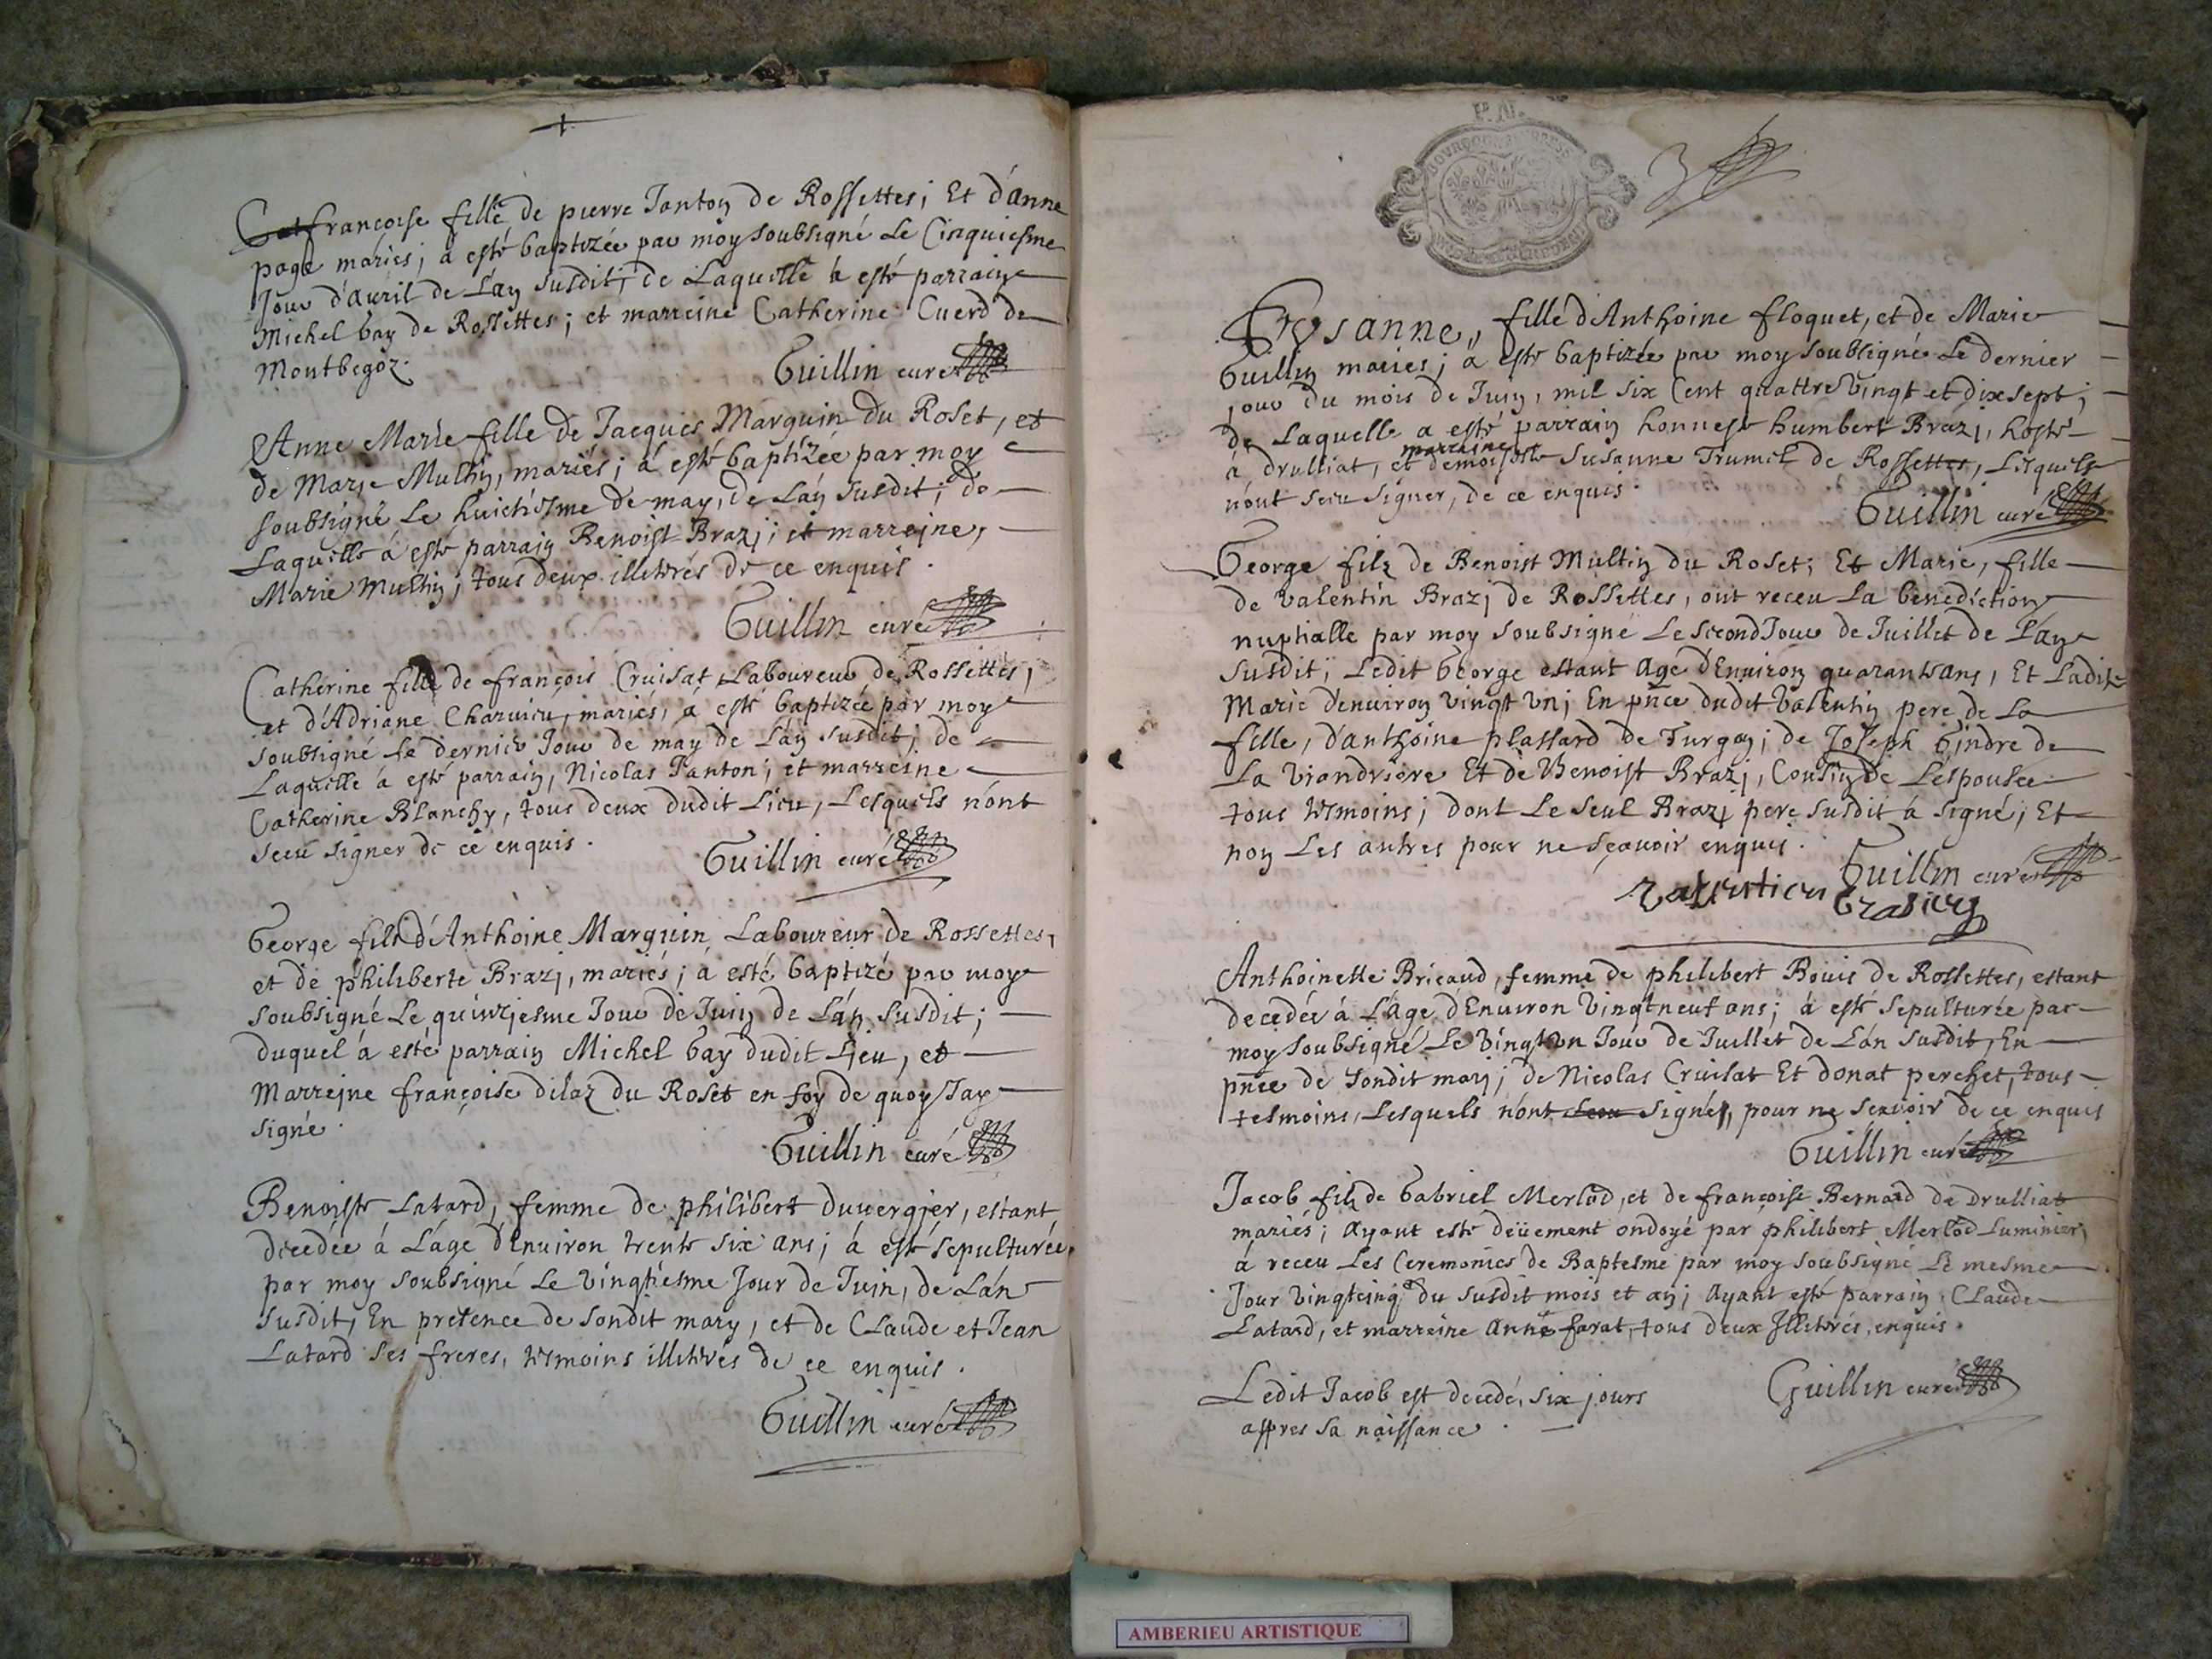 françoise fille de pierre Janton de Rossettes; Et d'anne
page mariés; a esté baptizée par moy soubsigné Le Cinquiesme
Jour d'auril de L'an susdit; de Laquelle à esté parrain
Michel bay de Rossettes; et marreine Catherine Cuerd de
Montbegoz.
Guillin curé
Anne Marie fille de Jacques Marguin du Roset, et
de Marie Multin, mariés; à esté baptizée par moy
soubsigné Le huictiesme de may, de L'an susdit; de
Laquelle à esté parrain Benoist Brazj; et marreine,
Marie Multin; tous deux illetrés de ce enquis.
Guillin curé
Catherine fille de françois Cruisat Laboureur de Rossettes,
et d'Adriane Charuieu, mariés, a esté baptizée par moy
soubsigné Le dernier Jour de may de L'an susdit; de
Laquelle à esté parrain, Nicolas Janton; et marreine
Catherine Blanchy, tous deux dudit Lieu, Lesquels n'ont
sceu signer de ce enquis.
Guillin curé
George filz d'Anthoine Marguin Laboureur de Rossettes,
et de philiberte Brazj, mariés; à esté baptizé par moy
soubsigné Le quinziesme Jour de Juin de L'an susdit;
duquel à esté parrain Michel bay dudit Lieu, et
Marrejne françoise dilaz du Roset en foy de quoy J'ay
signé.
Guillin curé
Benoiste Latard, femme de philibert duuergier, estant
decedée à L'age d'Enuiron trente six ans; à esté sepulturée
par moy soubsigné Le vingtiesme Jour de Juin, de L'an
susdit, En presence de sondit mary, et de Claude et Jean
Latard ses freres, tesmoins illetrés de ce enquis.
Guillin curé
BOVRGOGNE BRESSE
3
Susanne, fille d'Anthoine floquet, et de Marie
Guillin mariés; à esté baptizée par moy soubsigné Le dernier
jour du mois de Juin, mil six Cent quattre vingt et dixsept;
de Laquelle a esté parrain honneste humbert Brazj, hoste
à drulliat, et marraine demoiselle Susanne Trumel de Rossettes, Lesquels
n'ont sceu signer, de ce enquis.
Guillin curé
George filz de Benoist Multin du Roset; Et Marie, fille
de valentin Brazj de Rossettes, ont receu La benediction
nuptialle par moy soubsigné Le second Jour de Juillet de L'an
susdit; Ledit George estant agé d'Enuiron quarante ans, Et Ladite
Marie d'enuiron vingt vn; En pñce dudit valentin pere de La
fille, d'anthoine plassard de Turgon; de Joseph Gindre de
La viandriere Et de Benoist Brazj, Cousin de L'espousée
tous tesmoins; dont Le seul Brazj pere susdit à signé; Et
non Les autres pour ne sçauoir enquis.
Guillin curé
Anthoinette Bricaud, femme de philibert Bouis de Rossettes, estant
decedée à L'age d'Enuiron vingtneuf ans; à esté sepulturée par
moy soubsigné Le vingt vn Jour de Juillet de L'an susdit, En
pñce de sondit mary; de Nicolas Cruisat Et donat perchet, tous
tesmoins, Lesquels n'ont sceu signér, pour ne sçauoir de ce enquis
Guillin curé
Jacob filz de Gabriel Merlod, et de françoise Bernard de Drulliat
mariés; Ayant esté deüement ondoyé par philibert Merlod Luminier,
à receu Les Ceremonies de Baptesme par moy soubsigné Le mesme
Jour vingtcinq du susdit mois et an; Ayant esté parrain Claude
Latard, et marreine Anne farat, tous deux Jlletrés, enquis.
Ledit Jacob est decedé, six jours
appres sa naissance.
Guillin curé
AMBERIEU ARTISTIQUE